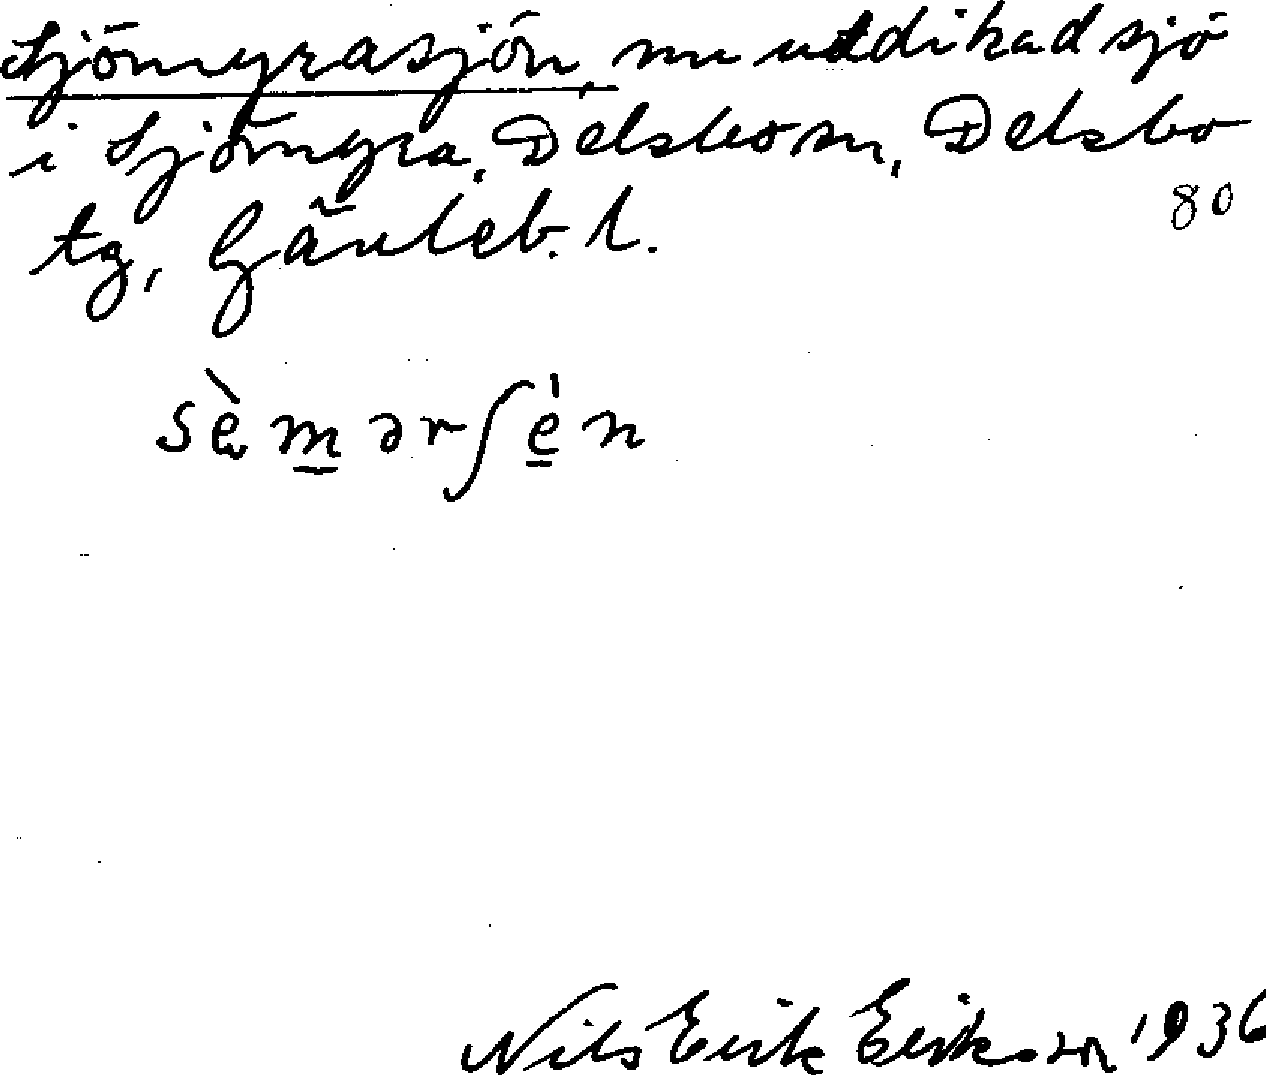 Sjömyrasjön, nu utdikad sjö
i Sjömyra, Delsbo sn, Delsbo
tg, Gävleb. l.
80
Nils Erik Erikson 1936